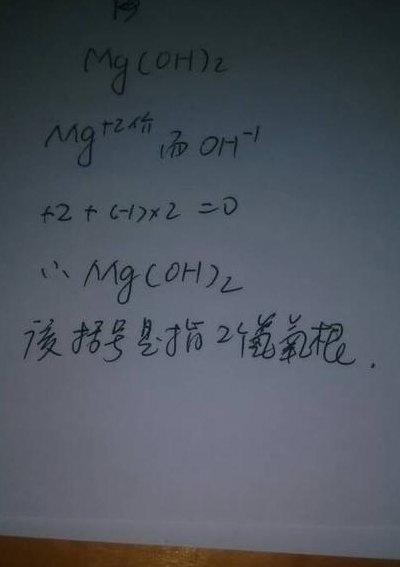 Mg(OH)₂
Mg⁺²价 而 OH⁻¹
+2 + (-1)×2 =0
∴ Mg(OH)₂
该括号是指2个氢氧根.